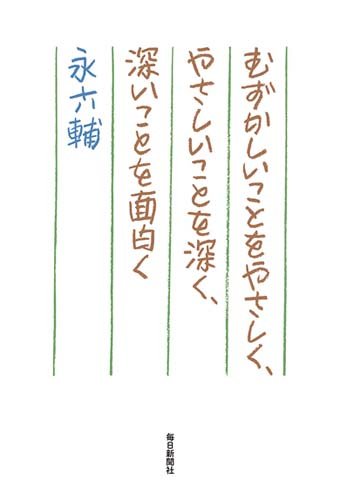 むずかしいことをやさしく、
やさしいことを深く、
深いことを面白く
永六輔
毎日新聞社